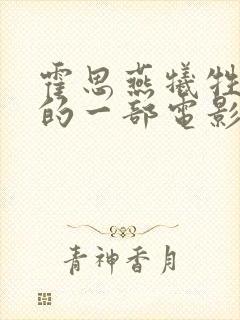 霍思燕犠牲
的一部电影
青神香月